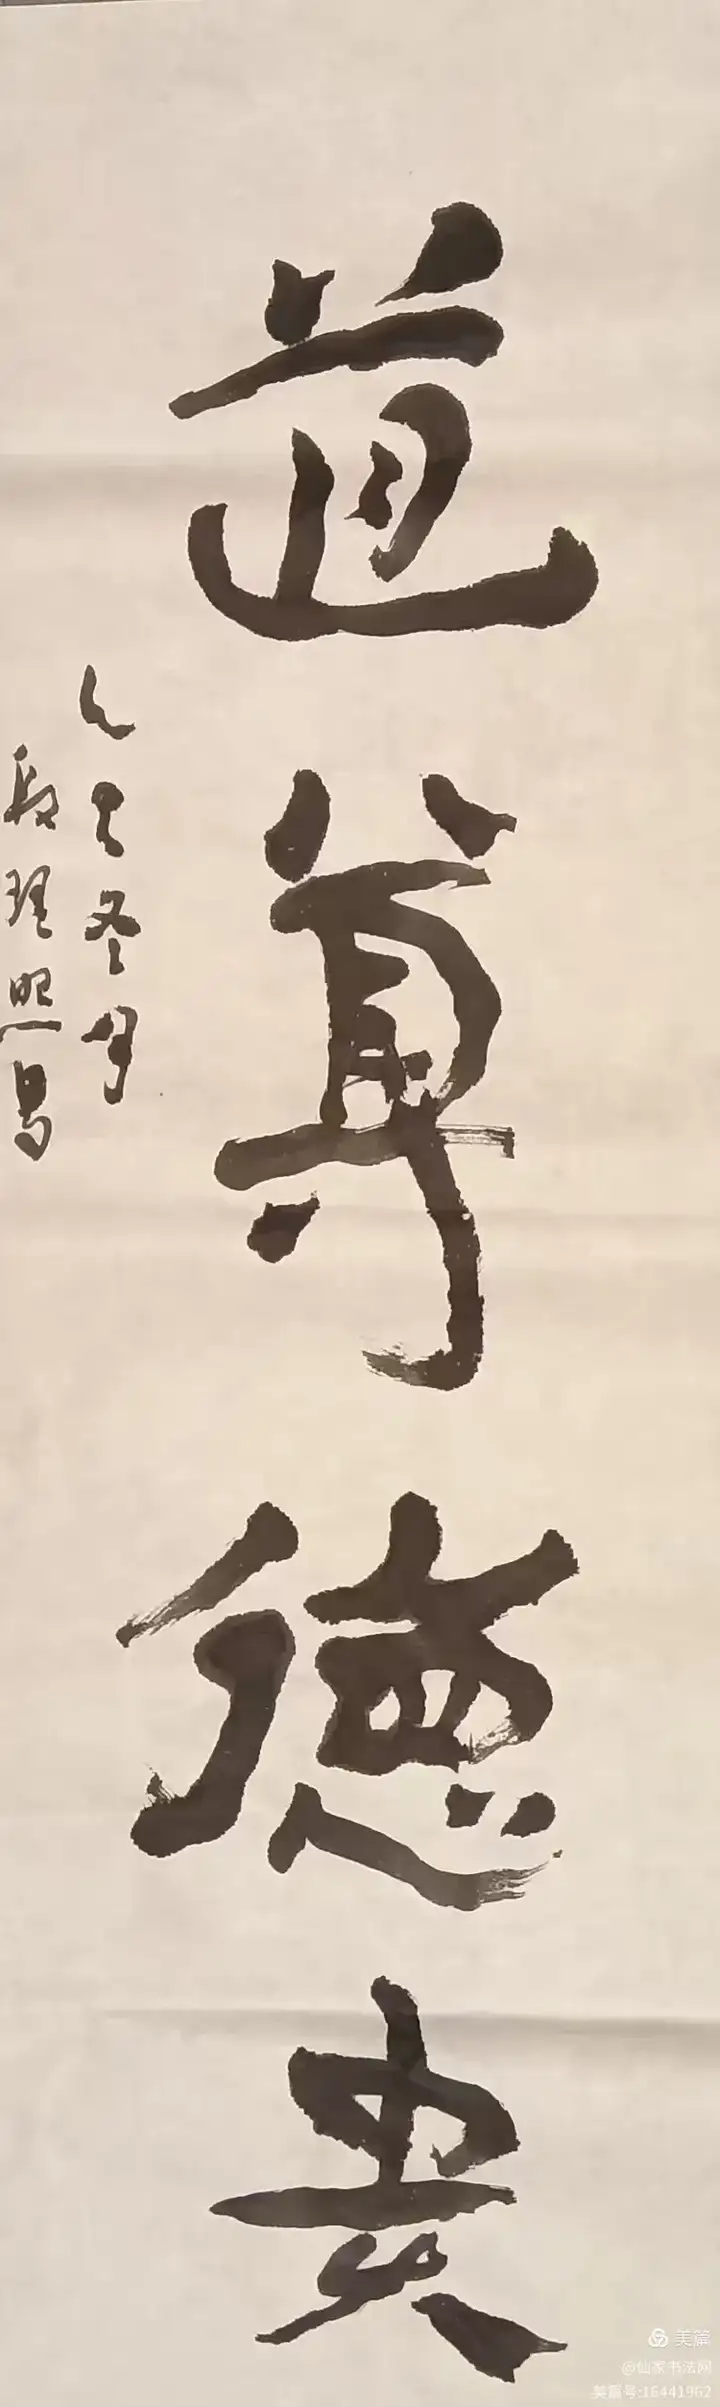 道尊德贵
冬月
段理照书
美篇
@仙家书法网
美篇号:16441962